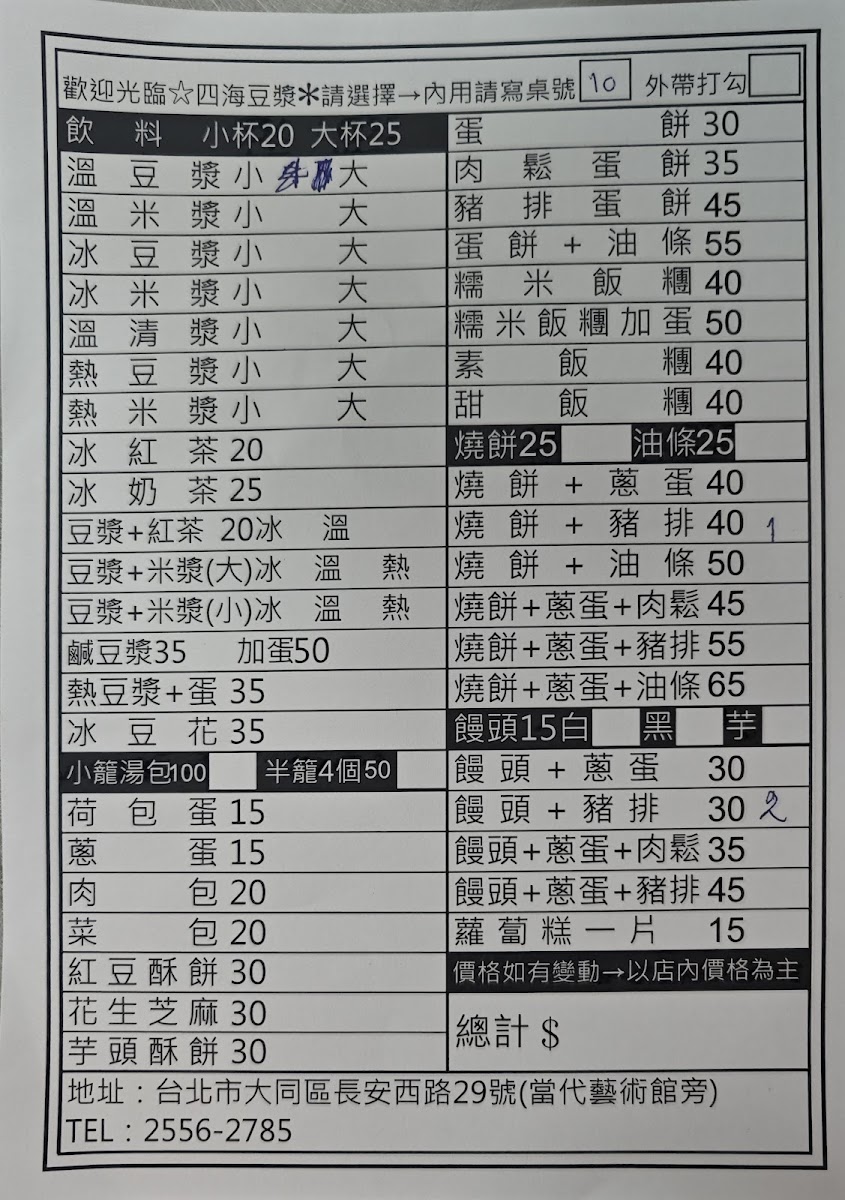 歡迎光臨☆四海豆漿＊請選擇→內用請寫桌號 10 外帶打勾
飲料 小杯20 大杯25
溫豆漿 小 大
溫米漿 小 大
冰豆漿 小 大
冰米漿 小 大
溫清漿 小 大
熱豆漿 小 大
熱米漿 小 大
冰紅茶 20
冰奶茶 25
豆漿+紅茶 20冰 溫
豆漿+米漿(大)冰 溫 熱
豆漿+米漿(小)冰 溫 熱
鹹豆漿35 加蛋50
熱豆漿+蛋 35
冰豆花 35
小籠湯包100 半籠4個50
荷包蛋 15
蔥蛋 15
肉包 20
菜包 20
紅豆酥餅 30
花生芝麻 30
芋頭酥餅 30
蛋餅 30
肉鬆蛋餅 35
豬排蛋餅 45
蛋餅+油條 55
糯米飯糰 40
糯米飯糰加蛋 50
素飯糰 40
甜飯糰 40
燒餅25 油條25
燒餅+蔥蛋 40
燒餅+豬排 40 1
燒餅+油條 50
燒餅+蔥蛋+肉鬆 45
燒餅+蔥蛋+豬排 55
燒餅+蔥蛋+油條 65
饅頭15白 黑 芋
饅頭+蔥蛋 30
饅頭+豬排 30 2
饅頭+蔥蛋+肉鬆 35
饅頭+蔥蛋+豬排 45
蘿蔔糕一片 15
價格如有變動→以店內價格為主
總計 $
地址：台北市大同區長安西路29號(當代藝術館旁)
TEL：2556-2785